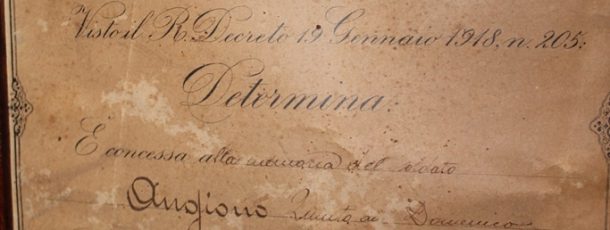 Visto il R. Decreto 19 Gennaio 1918, n. 205:
Determina:
È concessa alla memoria del soldato
Angiono Domenico